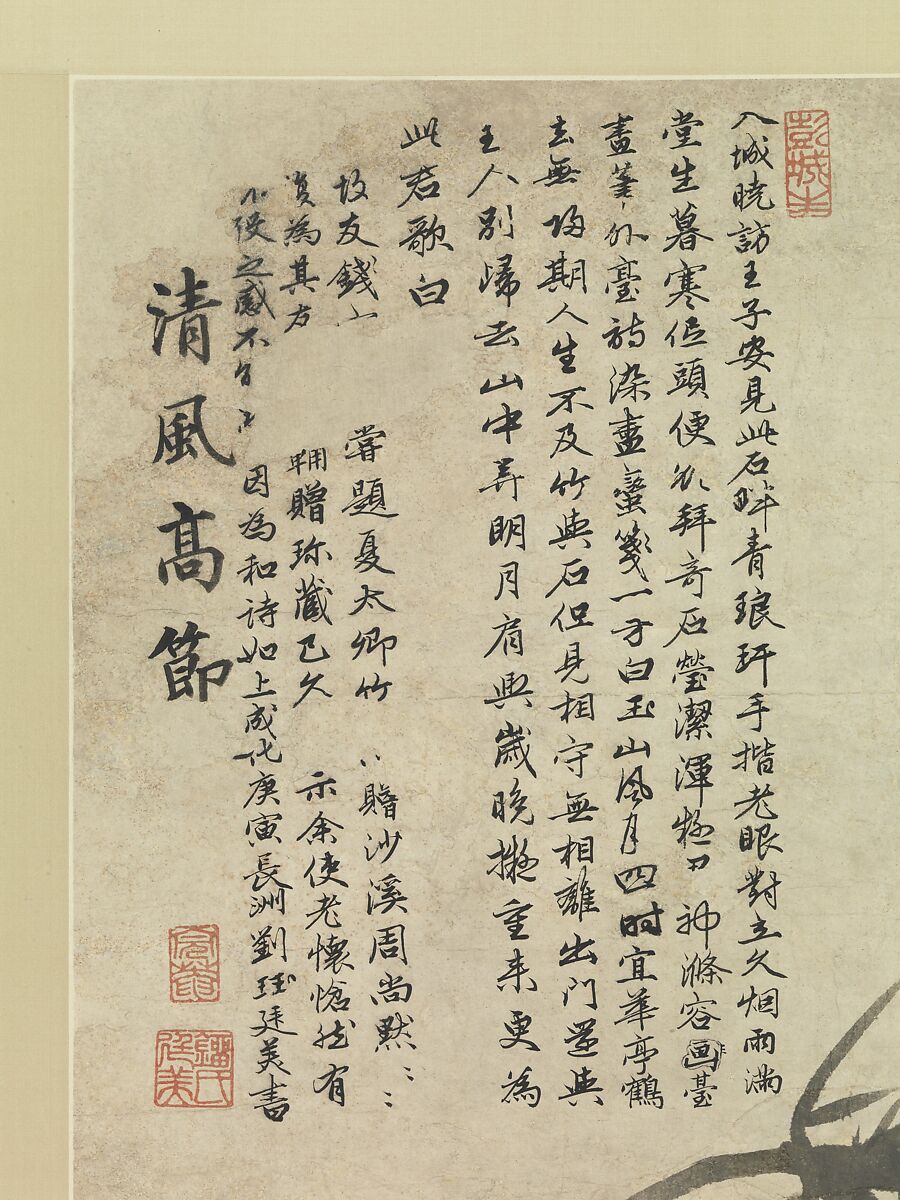 彭城
入城曉訪王子安見此石畔青琅玕手揩老眼對立久烟雨滿
堂生暮寒低頭便欲拜奇石瑩潔渾疑神滌容画臺
畫筆外臺詩染畫蠻箋一方白玉山風月四时宜華亭鶴
去無歸期人生不及竹與石但見相守無相離出門還與
主人別歸去山中弄明月肩輿歲晚擬重来更為
此君歌白
故友錢 嘗題夏太卿竹 贈沙溪周尚默
資為其方 贈珎藏已久 示余使老懷愴然有
不便之感不自 因為和詩如上成化庚寅長洲劉珏廷美書
清風高節
劉氏廷美